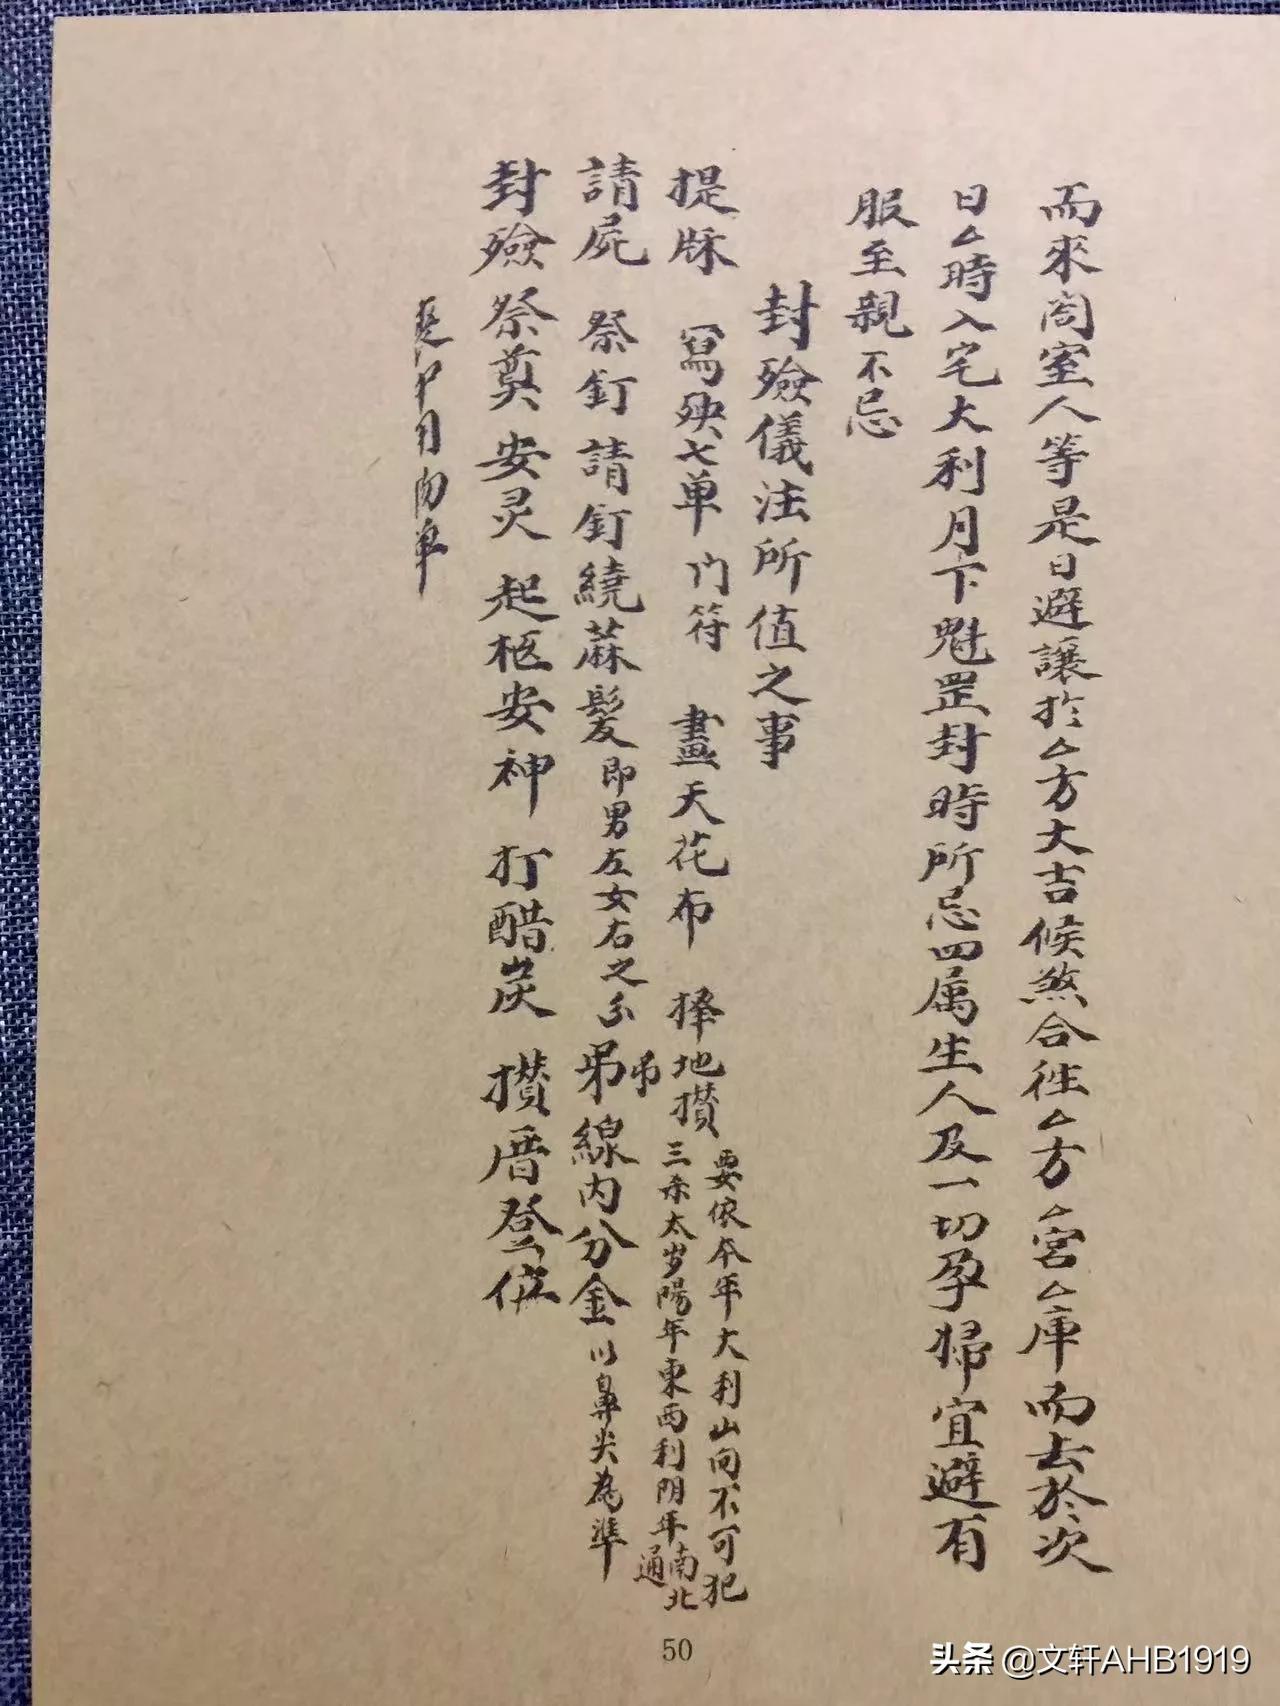 而來閤室人等是日避讓扵厶方大吉候煞合徃厶方厶宮厶庫而去於次
日厶時入宅大利月下魁罡封時所忌四属生人及一切孕婦宜避有
服至親不忌
封殮儀注所值之事
提牀 寫殃七单 门符 畫天花布 择地攅 要依本年大利山向不可犯
三杀太岁陽年東西利阴年南北通
請屍 祭釘 請釘繞蔴髮即男左女右之分 弔線内分金以鼻尖為準
弔
封殮祭奠安灵 起柩安神 打醋炭 攅厝登位
50
头条 @文轩AHB1919